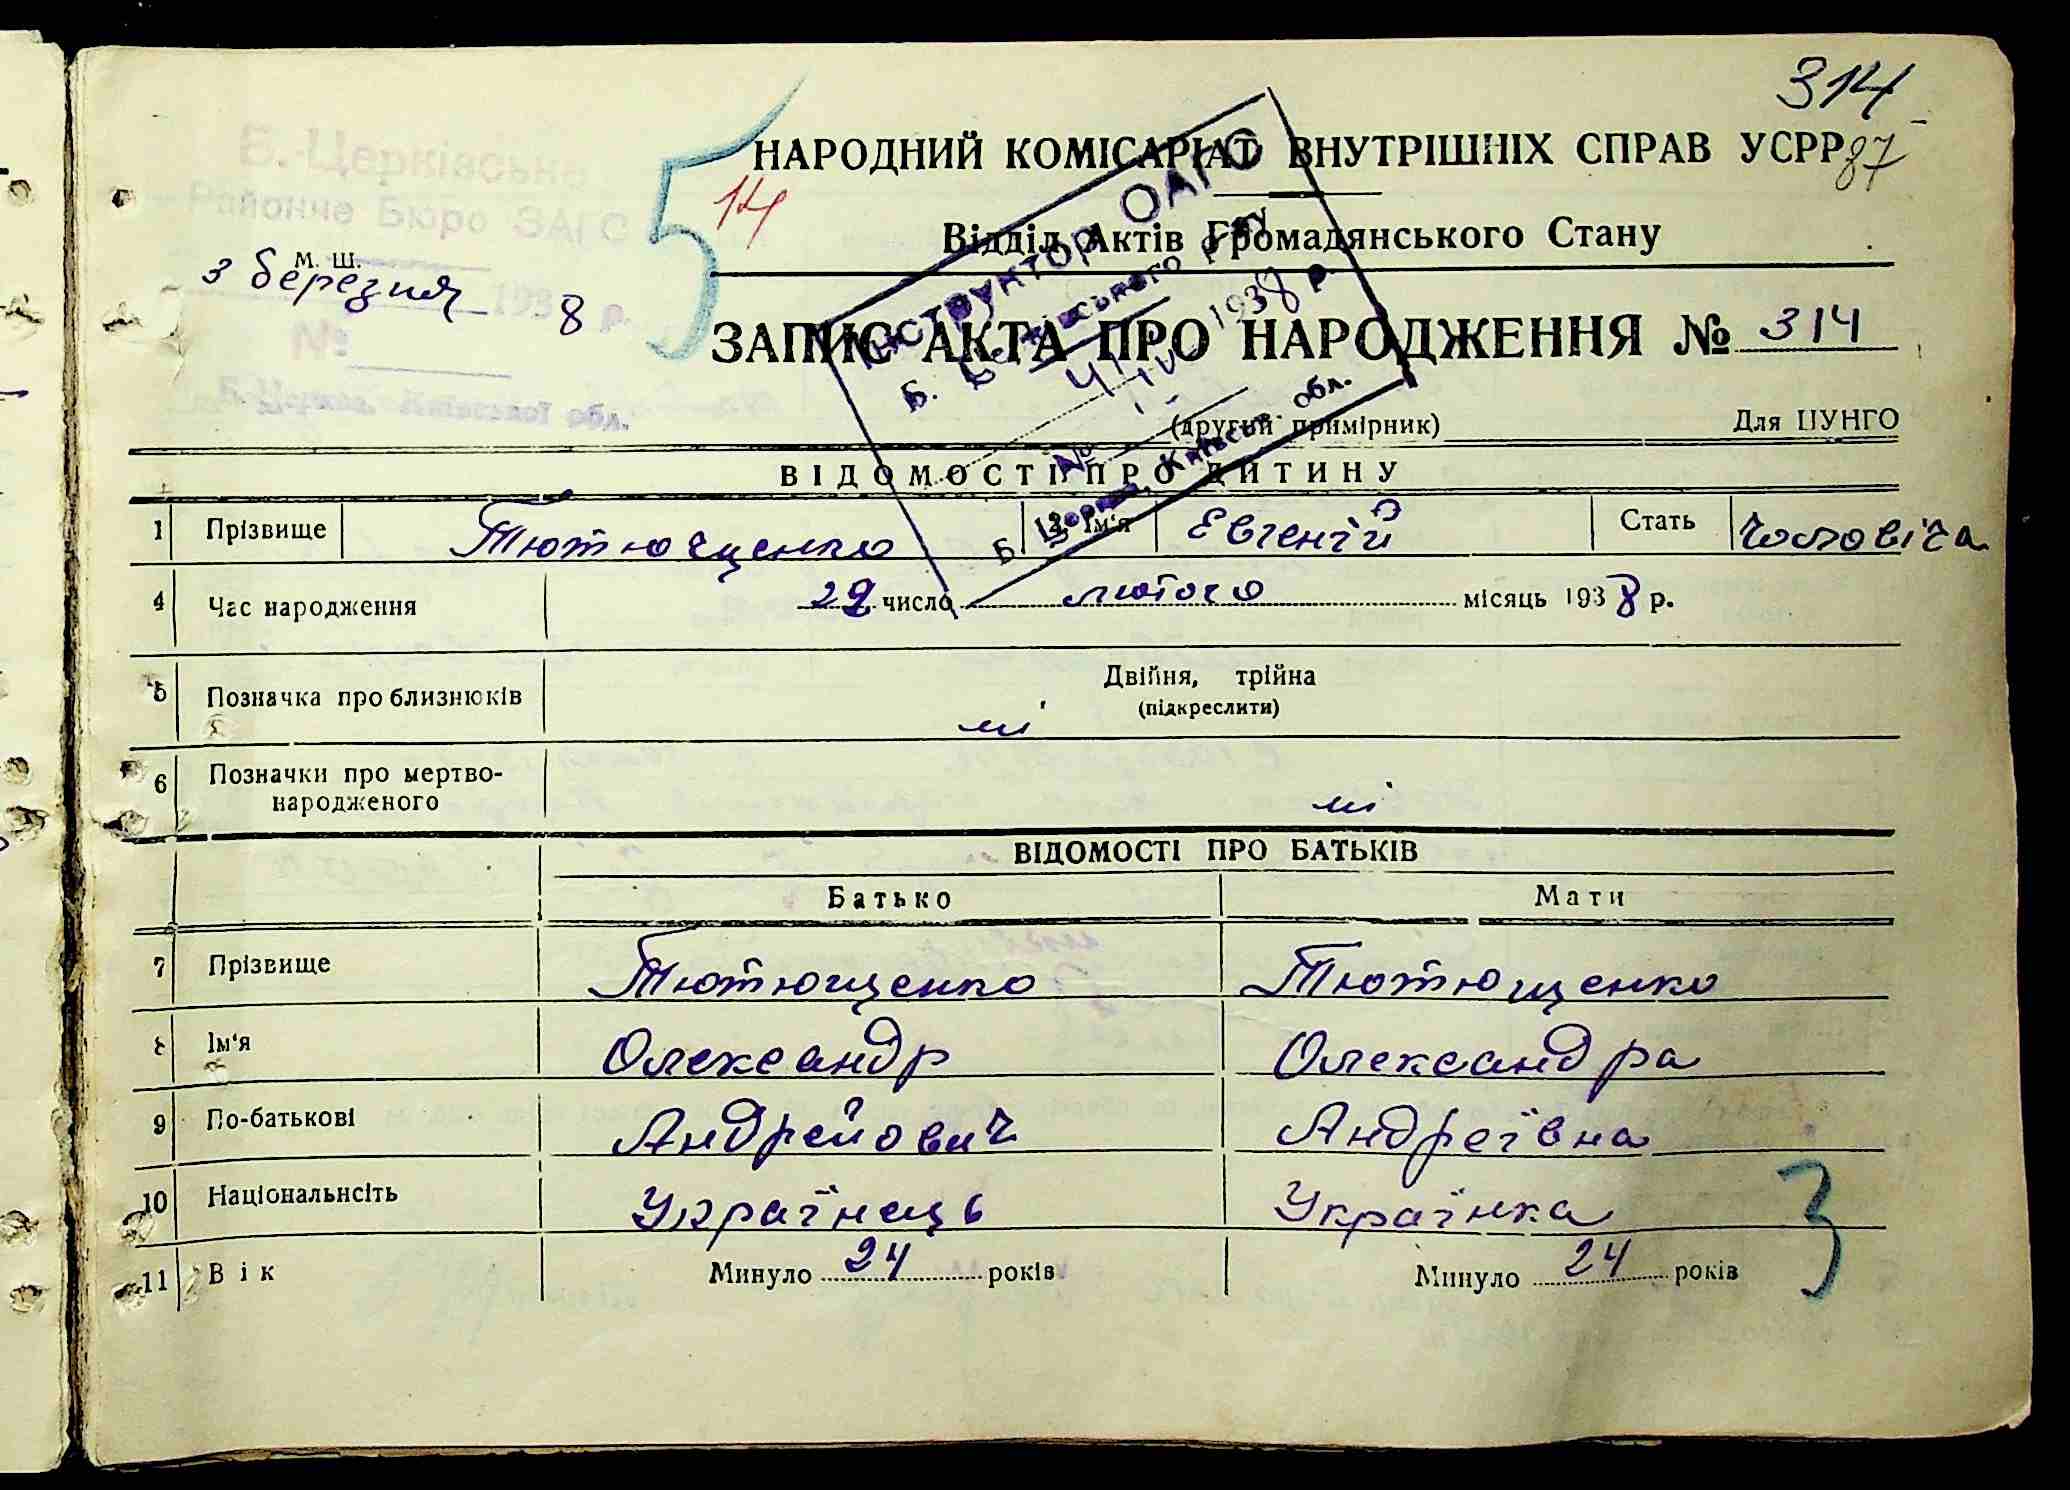 314
НАРОДНИЙ КОМІСАРІАТ ВНУТРІШНІХ СПРАВ УСРР
87
Б.-Церківське
Районне Бюро ЗАГС
14
5
Відділ Актів Громадянського Стану
м. ш.
3 березня 1938 р.
№
Б. Церква, Київської обл.
ІНСТРУКТОР ОАГС
Б. Церківського РВ
4/IV 1938 р.
№
Б. Церква, Київськ. обл.
ЗАПИС АКТА ПРО НАРОДЖЕННЯ № 314
(другий примірник)
Для ЦУНГО
ВІДОМОСТІ ПРО ДИТИНУ
1 Прізвище Тютющенко 2 Ім'я Евгеній Стать чоловіча
4 Час народження 22 число лютого місяць 1938 р.
5 Позначка про близнюків Двійня, трійна
(підкреслити)
ні
6 Позначки про мертво-
народженого ні
ВІДОМОСТІ ПРО БАТЬКІВ
Батько Мати
7 Прізвище Тютющенко Тютющенко
8 Ім'я Олександр Олександра
9 По-батькові Андрейович Андреївна
10 Національнсіть Українець Українка
3
11 Вік Минуло 24 років Минуло 24 років